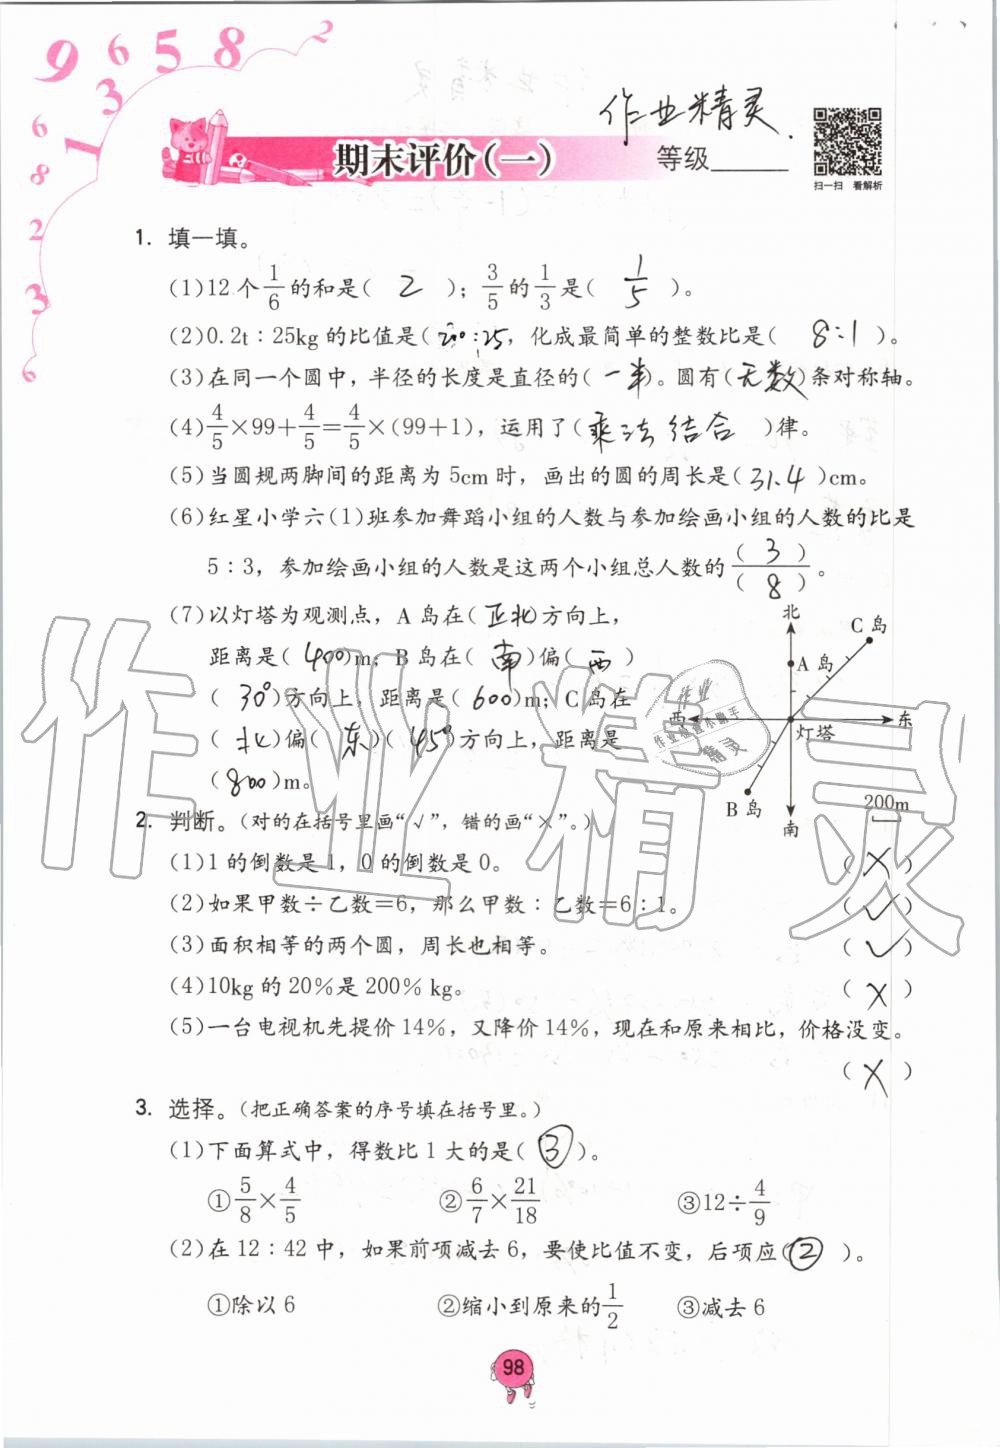 9 6 5 8 2
1 3
6
8
2
3
6
作业精灵.
期末评价(一) 等级______
扫一扫 看解析
1. 填一填。
(1)12个1/6的和是( 2 );3/5的1/3是( 1/5 )。
(2)0.2t∶25kg的比值是(200:25,化成最简单的整数比是( 8:1 )。
(3)在同一个圆中,半径的长度是直径的( 一半)。圆有(无数)条对称轴。
(4)4/5×99+4/5=4/5×(99+1),运用了( 乘法结合 )律。
(5)当圆规两脚间的距离为5cm时,画出的圆的周长是( 31.4 )cm。
(6)红星小学六(1)班参加舞蹈小组的人数与参加绘画小组的人数的比是
5∶3,参加绘画小组的人数是这两个小组总人数的( 3 )/( 8 )。
(7)以灯塔为观测点,A岛在(正北)方向上,
距离是( 400)m;B岛在( 南)偏( 西 )
( 30°)方向上,距离是(600)m;C岛在
( 北)偏( 东)( 45°)方向上,距离是
(800)m。
北
C岛
A岛
西
东
灯塔
B岛
南
200m
2. 判断。(对的在括号里画“√”,错的画“×”。)
(1)1的倒数是1,0的倒数是0。 ( × )
(2)如果甲数÷乙数=6,那么甲数∶乙数=6∶1。 ( √ )
(3)面积相等的两个圆,周长也相等。 ( √ )
(4)10kg的20%是200%kg。 ( × )
(5)一台电视机先提价14%,又降价14%,现在和原来相比,价格没变。
( × )
3. 选择。(把正确答案的序号填在括号里。)
(1)下面算式中,得数比1大的是( ③ )。
①5/8×4/5 ②6/7×21/18 ③12÷4/9
(2)在12∶42中,如果前项减去6,要使比值不变,后项应( ② )。
①除以6 ②缩小到原来的1/2 ③减去6
98
作业精灵
作业
作业检查小助手
精灵